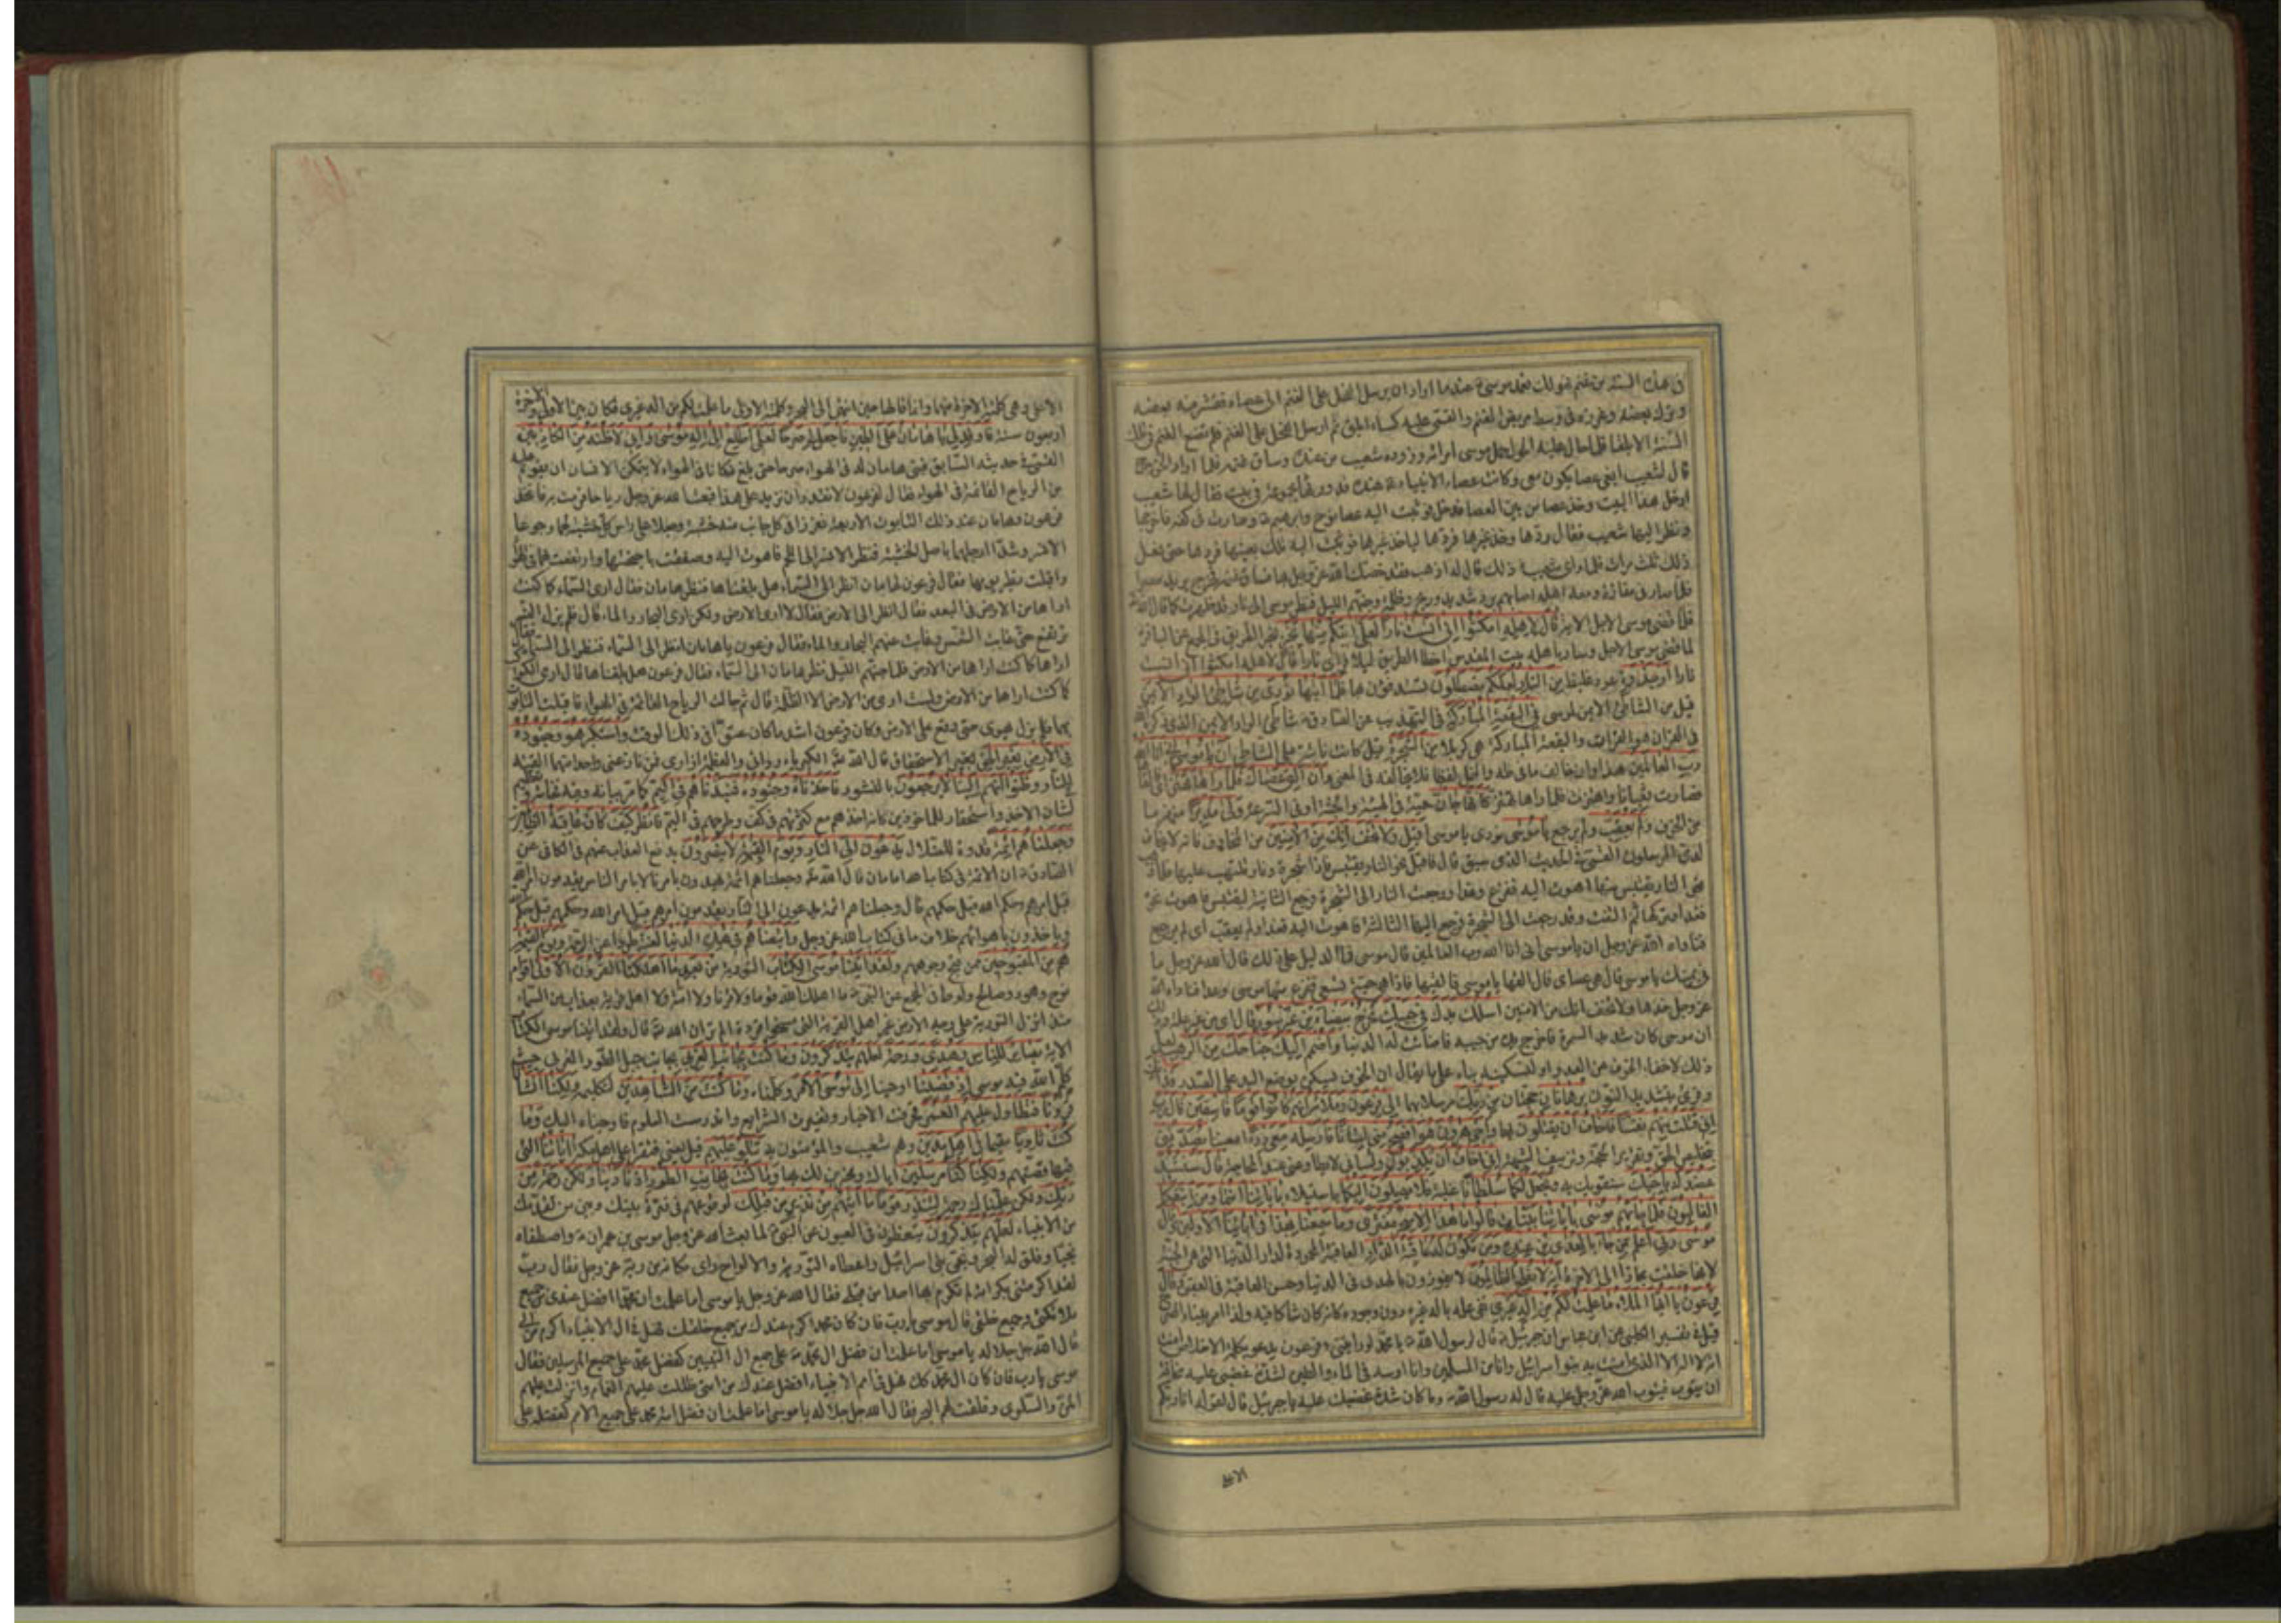 في هذه السنة من غنم فهو لك فعمد موسى عند ما اراد ان يرسل الفحل على الغنم الى عصاه فقشر منه بعضه
وترك بعضه وغرزه في وسط مربض الغنم والقى عليه كساء ابلق ثم ارسل الفحل على الغنم فلم تضع الغنم في تلك
السنة الا بلقا فلما حال عليه الحول حمل موسى امرأته وزوده شعيب من عنده وساق غنمه فلما اراد الخروج
قال لشعيب ابغي عصا يكون معي وكانت عصاء الانبياء عنده قد ورثها مجموعة في بيت فقال لها شعيب
ادخل هذا البيت وخذ عصا من بين العصا فدخل فوثبت اليه عصا نوح وابراهيم وصارت في كفه فاخرجها
ونظر اليها شعيب فقال ردها وخذ غيرها فردها لياخذ غيرها فوثبت اليه تلك بعينها فردها حتى فعل
ذلك ثلث مرات فلما راى شعيب ذلك قال له اذهب فقد خصك الله عز وجل بها فساق غنمه فخرج يريد مصر
فلما صار في مفازة ومعه اهله اصابهم برد شديد وريح وظلمة وجنهم الليل فنظر موسى الى نار قد ظهرت كما قال الله
فلما قضى موسى الاجل الاية قال لاهله امكثوا اني انست نارا لعلي اتيكم منها بخبر بخبر الطريق في المجمع عن الباقر
لما قضى موسى الاجل وسار باهله بيت المقدس اخطا الطريق ليلا فراى نارا قال لاهله امكثوا اني انست
نارا او جذوة عود غليظ من النار لعلكم تصطلون تستدفؤن بها فلما اتيها نودي من شاطئ الواد الايمن
قيل من الشاطئ الايمن لموسى في البقعة المباركة في التهذيب عن الصادق شاطئ الواد الايمن الذي ذكره الله
في القران هو الفرات والبقعة المباركة هي كربلا من الشجرة قيل كانت نابتة على الشاطئ ان يا موسى اني انا الله
رب العالمين هذا وان خالف ما في طه والنمل لفظا فلا يخالفه في المعنى وان الق عصاك فلما راها تهتز اي فالقاها
فصارت ثعبانا واهتزت فلما راها تهتز كانها جان حية في الهيئة والجثة او في السرعة ولى مدبرا منهزما
من الخوف ولم يعقب ولم يرجع يا موسى نودي يا موسى اقبل ولا تخف انك من الامنين من المخاوف فانه لا يخاف
لدي المرسلون القمي في الحديث الذي سبق قال فاقبل نحو النار يقتبس فاذا شجرة ونار تلتهب عليها فلما ذهب
نحو النار يقتبس منها اهوت اليه ففزع وعدا ورجعت النار الى الشجرة فرجع الثانية ليقتبس فاهوت نحوه
فعدا وتركها ثم التفت وقد رجعت الى الشجرة فرجع اليها الثالثة فاهوت اليه فعدا ولم يعقب اي لم يرجع
فناداه الله عز وجل ان يا موسى اني انا الله رب العالمين قال موسى فما الدليل على ذلك قال الله عز وجل ما
في يمينك يا موسى قال هي عصاي قال القها يا موسى فالقيها فاذا هي حية تسعى ففزع منها موسى وعدا فناداه الله
عز وجل خذها ولا تخف انك من الامنين اسلك يدك في جيبك تخرج بيضاء من غير سوء قال اي من غير علة وذلك
ان موسى كان شديد السمرة فاخرج يده من جيبه فاضاءت له الدنيا واضمم اليك جناحك من الرهب
وقرئ بتشديد النون برهانان حجتان من ربك مرسلا بهما الى فرعون وملائه انهم كانوا قوما فاسقين قال رب
اني قتلت منهم نفسا فاخاف ان يقتلون بها واخي هرون هو افصح مني لسانا فارسله معي ردءا معينا يصدقني
بتخليص الحق وتقرير الحجة وتزييف الشبهة اني اخاف ان يكذبون ولساني لا يطاوعني عند المحاجة قال سنشد
عضدك باخيك سنقويك به ونجعل لكما سلطانا غلبة فلا يصلون اليكما باستيلاء باياتنا انتما ومن اتبعكما
الغالبون فلما جاءهم موسى باياتنا بينات قالوا ما هذا الا سحر مفترى وما سمعنا بهذا في ابائنا الاولين وقال
موسى ربي اعلم بمن جاء بالهدى من عنده ومن تكون له عاقبة الدار العاقبة المحمودة لدار الدنيا التي هي الجنة
لانها خلقت مجازا الى الاخرة انه لا يفلح الظالمون لا يفوزون بالهدى في الدنيا وحسن العاقبة في العقبى وقال
فرعون يا ايها الملاء ما علمت لكم من اله غيري نفى علمه باله غيره دون وجوده كانه كان شاكا فيه ولذا امر ببناء الصرح
قيل في تفسير الكلبي عن ابن عباس ان جبرئيل قال لرسول الله يا محمد لو رايتني وفرعون يدعو بكلمة الاخلاص امنت
انه لا اله الا الذي امنت به بنو اسرائيل وانا من المسلمين وانا ادسه في الماء والطين لشدة غضبي عليه مخافة
ان يتوب فيتوب الله عز وجل عليه قال له رسول الله وما كان شدة غضبك عليه يا جبرئيل قال لقوله انا ربكم
الاعلى
الاعلى وهي كلمته الاخرة منهما وانما قالها حين انتهى الى البحر وكلمته الاولى ما علمت لكم من اله غيري فكان بين الاولى والاخرة
اربعون سنة فاوقد لي يا هامان على الطين فاجعل لي صرحا لعلي اطلع الى اله موسى واني لاظنه من الكاذبين
القمي في حديثه السابق فبنى هامان له في الهواء صرحا حتى بلغ مكانا في الهواء لا يتمكن الانسان ان يقوم عليه
من الرياح القائمة في الهواء فقال لفرعون لا نقدر ان نزيد على هذا فبعث الله عز وجل رياحا فرمت به فاتخذ
فرعون وهامان عند ذلك التابوت
الانسر وشدا ارجلها باصل الخشبة فنظر الانسر الى اللحم فاهوت اليه وصفقت باجنحتها وارتفعت بهما في الهواء
واقبلت تطير يومها فقال فرعون لهامان انظر الى السماء هل بلغناها فنظر هامان فقال ارى السماء كما كنت
اراها من الارض في البعد فقال انظر الى الارض فقال لا ارى الارض ولكن ارى البحار والماء قال فلم يزل النسر
ترتفع حتى غابت الشمس وغابت عنهم البحار والماء فقال فرعون يا هامان انظر الى السماء فنظر الى السماء فقال
اراها كما كنت اراها من الارض فلما جنهم الليل نظر هامان الى السماء فقال فرعون هل بلغناها قال ارى الكواكب
كما كنت اراها من الارض ولست ارى من الارض الا الظلمة قال ثم جالت الرياح القائمة في الهواء فاقبلت التابوت
بهما فلم يزل يهوي حتى وقع على الارض وكان فرعون اشد ما كان عتوا في ذلك الوقت واستكبر هو وجنوده
في الارض بغير الحق بغير الاستحقاق قال الله الكبرياء ردائي والعظمة ازاري فمن نازعني واحدا منهما القيته
في النار وظنوا انهم الينا لا يرجعون بالنشور فاخذناه وجنوده فنبذناهم في اليم كما مر بيانه وفيه فخامة وتعظيم
لشان الاخذ واستحقار للماخوذين كانه اخذهم مع كثرتهم في كف وطرحهم في اليم فانظر كيف كان عاقبة الظالمين
وجعلناهم ائمة قدوة للضلال يدعون الى النار ويوم القيمة لا ينصرون بدفع العذاب عنهم في الكافي عن
الصادق ان الائمة في كتاب الله امامان قال الله وجعلناهم ائمة يهدون بامرنا لا بامر الناس يقدمون امر الله
قبل امرهم وحكم الله قبل حكمهم قال وجعلناهم ائمة يدعون الى النار يقدمون امرهم قبل امر الله وحكمهم قبل حكم الله
وياخذون باهوائهم خلاف ما في كتاب الله عز وجل واتبعناهم في هذه الدنيا لعنة طردا عن الرحمة ويوم القيمة
هم من المقبوحين ممن قبح وجوههم ولقد اتينا موسى الكتاب التورية من بعد ما اهلكنا القرون الاولى اقوام
نوح وهود وصالح ولوط في المجمع عن النبي ما اهلك الله قوما ولا قرنا ولا امة ولا اهل قرية بعذاب من السماء
منذ انزل التورية على وجه الارض غير اهل القرية التي مسخوا قردة الم تر ان الله قال ولقد اتينا موسى الكتاب
الاية بصائر للناس وهدى ورحمة لعلهم يتذكرون وما كنت بجانب الغربي بجانب جبل الطور الغربي حيث
كلم الله فيه موسى اذ قضينا اوحينا الى موسى الامر وكلمناه وما كنت من الشاهدين لتكليمه ولكنا انشأنا
قرونا فتطاول عليهم العمر فحرفت الاخبار وتغيرت الشرايع واندرست العلوم فاوحيناه اليك وما
كنت ثاويا مقيما في اهل مدين وهم شعيب والمؤمنون به تتلو عليهم قيل يعني فتقرا على اهل مكة اياتنا التي
فيها قصتهم ولكنا كنا مرسلين اياك ومخبرين لك بها وما كنت بجانب الطور اذ نادينا ولكن رحمة من
ربك ولكن علمناك رحمة لتنذر قوما ما اتيهم من نذير من قبلك لوقوعهم في فترة بينك وبين من تقدمك
من الانبياء لعلهم يتذكرون يتعظون في العيون عن النبي لما بعث الله عز وجل موسى بن عمران واصطفاه
نجيا وفلق له البحر ونجى بني اسرائيل واعطاه التورية والالواح راى مكانه من ربه عز وجل فقال رب
لقد اكرمتني بكرامة لم تكرم بها احدا من قبلي فقال الله عز وجل يا موسى اما علمت ان محمدا افضل عندي من جميع
ملائكتي وجميع خلقي قال موسى يا رب فان كان محمد اكرم عندك من جميع خلقك فهل في ال الانبياء اكرم من الي
قال الله جل جلاله يا موسى اما علمت ان فضل ال محمد على جميع ال النبيين كفضل محمد على جميع المرسلين فقال
موسى يا رب فان كان ال محمد كك فهل في امم الانبياء افضل عندك من امتي ظللت عليهم الغمام وانزلت عليهم
المن والسلوى وفلقت لهم البحر فقال الله جل جلاله يا موسى اما علمت ان فضل امة محمد على جميع الامم كفضله على